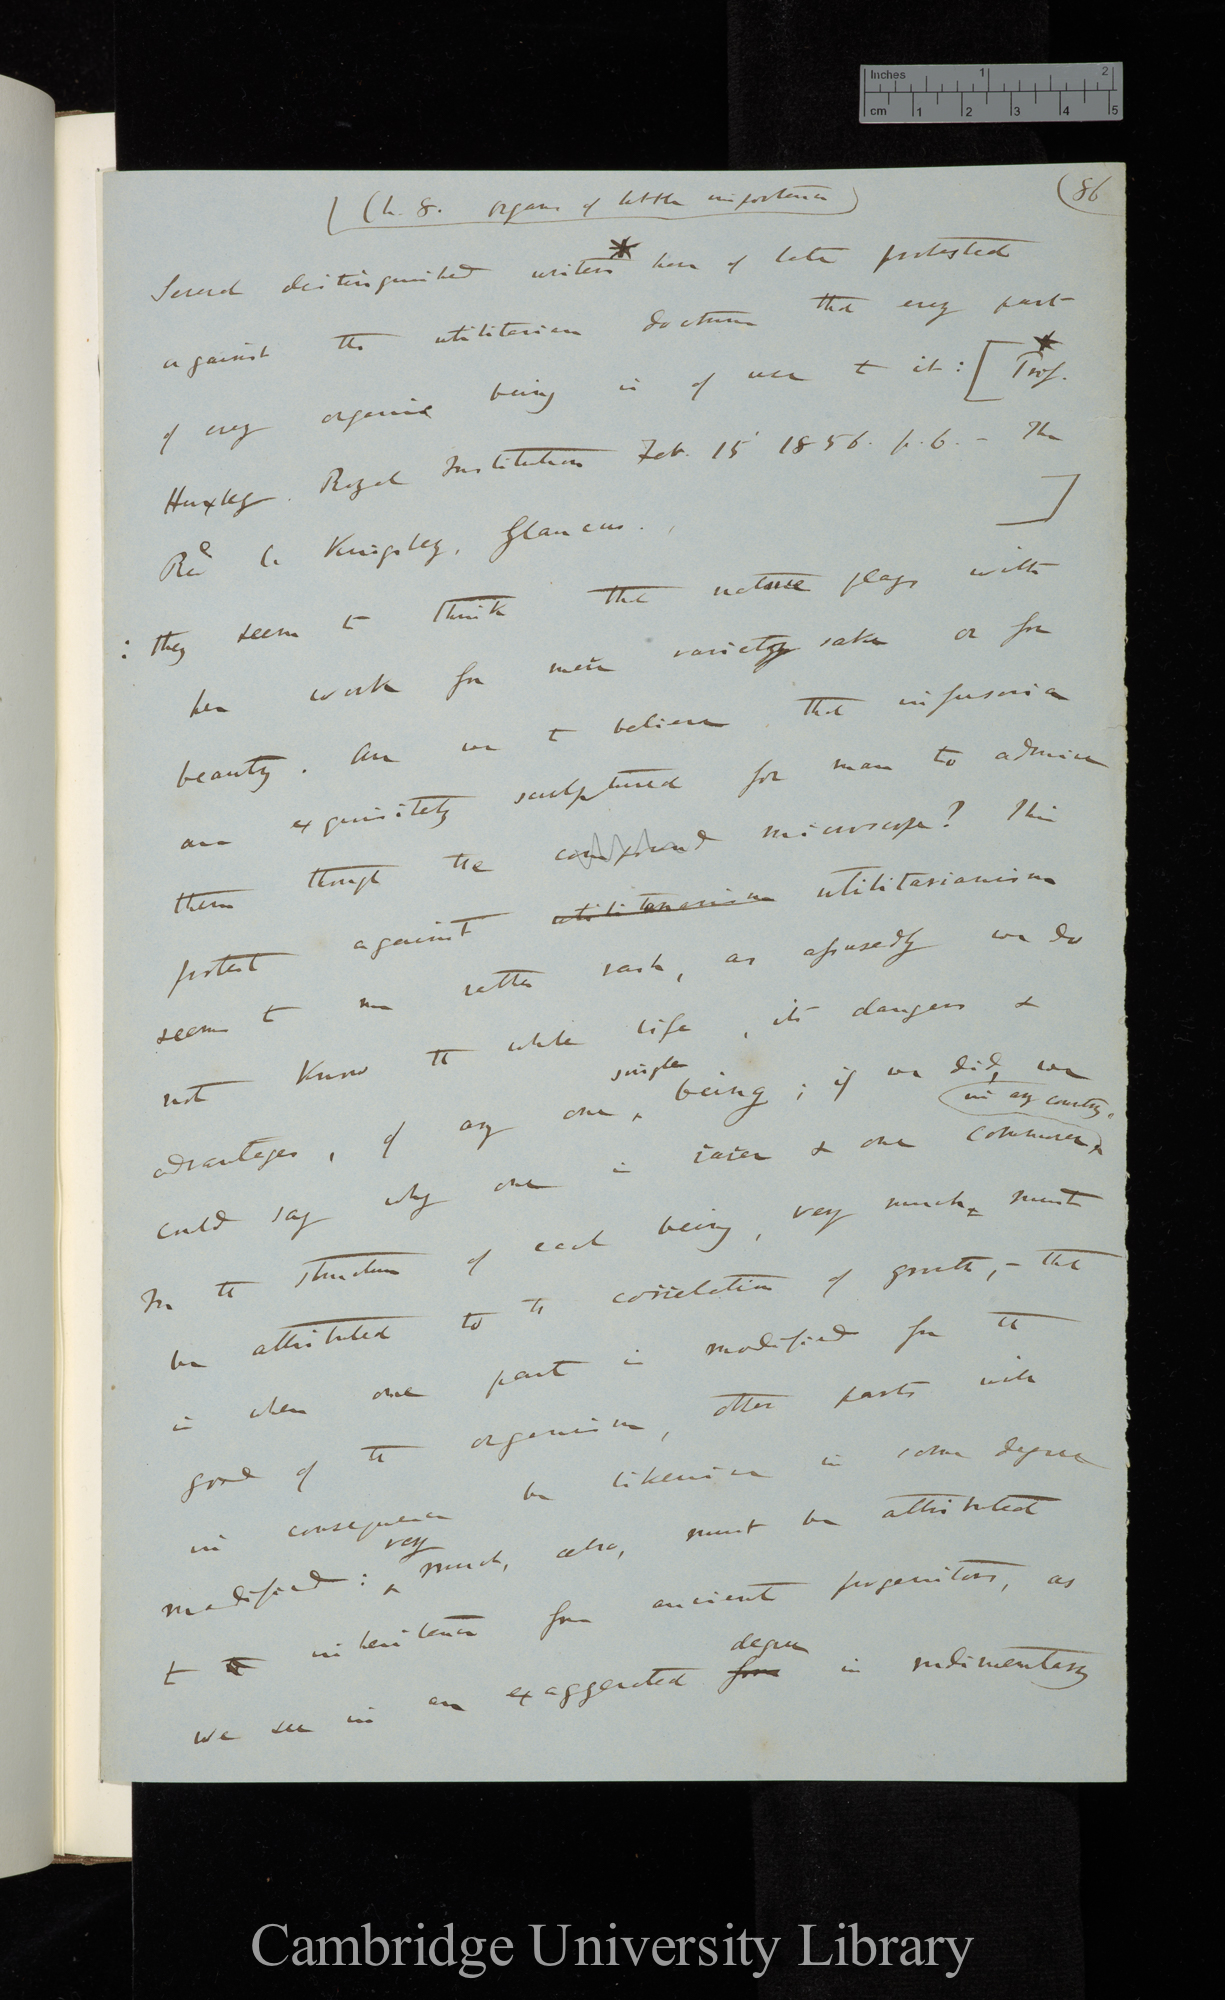 Inches 1 2
cm 1 2 3 4 5
(86
(Ch. 8. organs of little importance)
Several distinguished writers * have of late protested
against the utilitarian doctrine that every part
of every organic being is of use to it: [* Prof.
Huxley. Royal Institution Feb. 15 1856. p. 6. – The
Revd C. Kingsley, Glaucus. ]
: they seem to think that nature plays with
her work for mere variety sake or for
beauty. Are we to believe that infusoria
are exquisitely sculptured for man to admire
them through the compound microscope? This
protest against utilitarianism utilitarianism
seems to me rather rash, as assuredly we do
not know the whole life, its dangers &
advantages, of any one single being; if we did, we
could say why one is rarer & one commoner in any country.
In the structure of each being, very much must
be attributed to the correlation of growth, – that
is when one part is modified for the
good of the organism, other parts will
in consequence be likewise in some degree
modified: very much, also, must be attributed
to inheritance from ancient progenitors, as
we see in an exaggerated form degree in rudimentary
Cambridge University Library